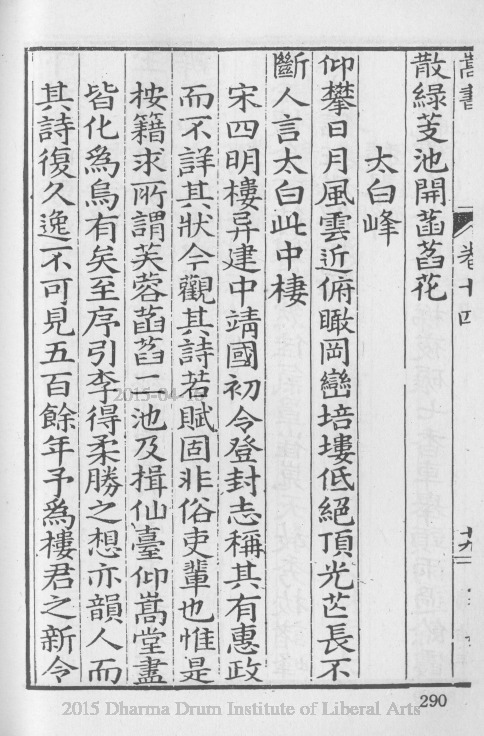 嵩書
卷十四
十九
散綠芰池開菡萏花
太白峰
仰攀日月風雲近俯瞰岡巒培塿低絕頂光芒長不
斷人言太白此中棲
宋四明樓异建中靖國初令登封志稱其有惠政
而不詳其狀今觀其詩若賦固非俗吏輩也惟是
按籍求所謂芙蓉菡萏二池及揖仙臺仰嵩堂盡
皆化爲烏有矣至序引李得柔勝之想亦韻人而
其詩復久逸不可見五百餘年予爲樓君之新令
2015-04-16
290
2015 Dharma Drum Institute of Liberal Arts